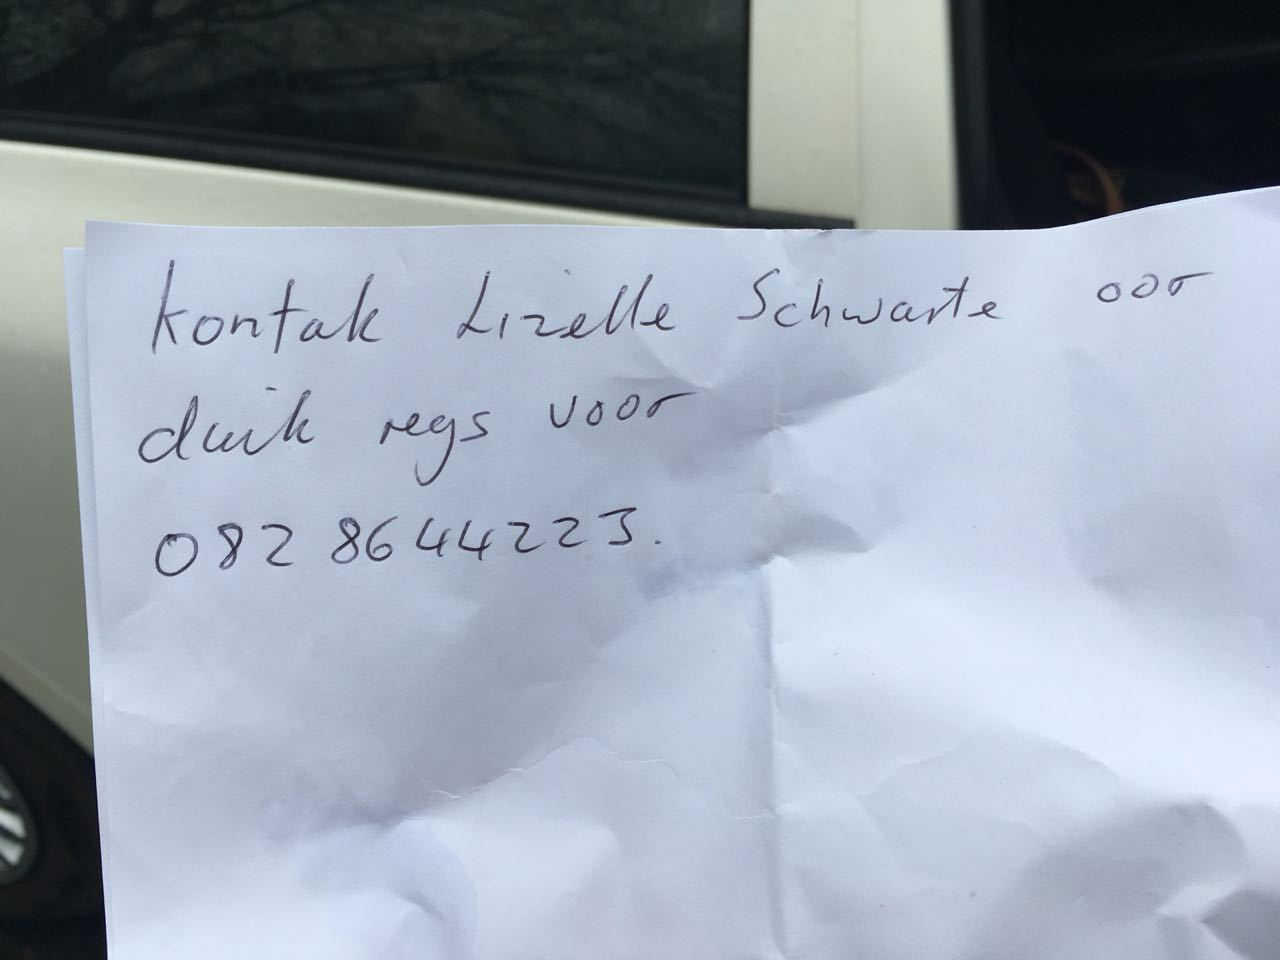 kontak Lizelle Schwarte oor
duik regs voor
082 8644223.